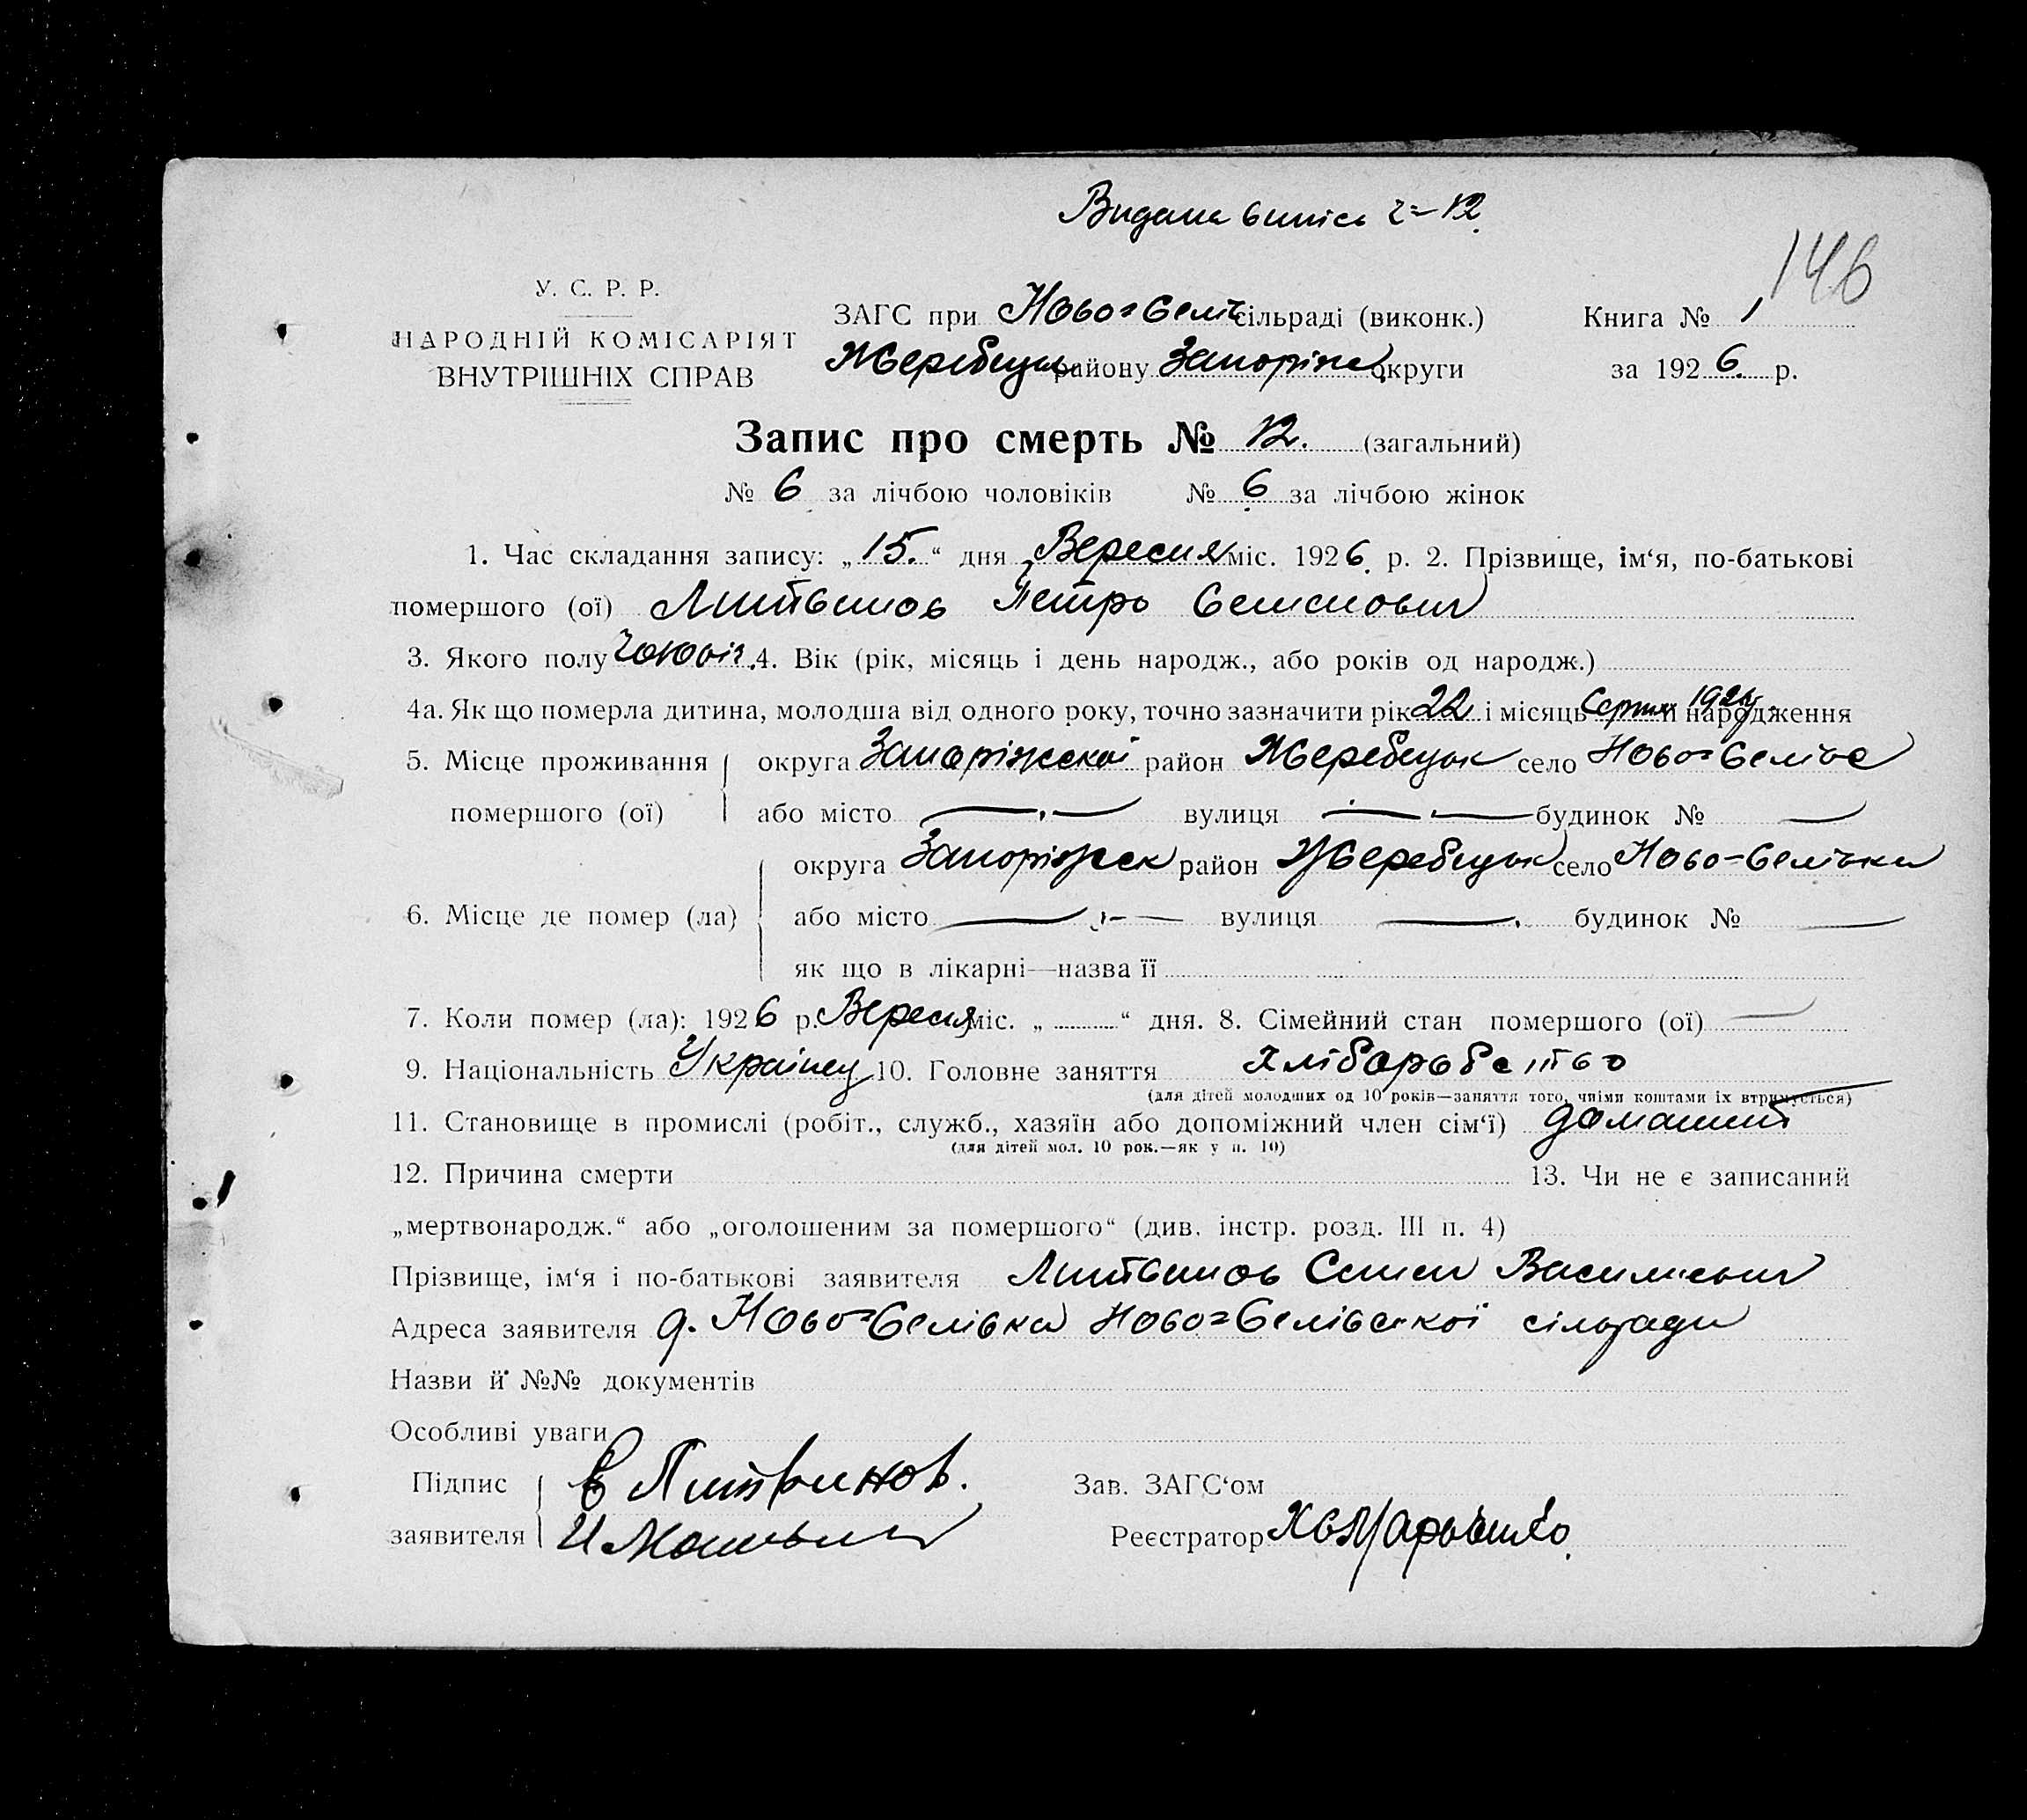 Видана випісь ч=12
146
У. С. Р. Р.
НАРОДНІЙ КОМІСАРІЯТ
ВНУТРІШНІХ СПРАВ
ЗАГС при Ново=Селів сільраді (виконк.)
Жеребецьк району Запоріж округи
Книга № 1
за 1926. р.
Запис про смерть № 12. (загальний)
№ 6 за лічбою чоловіків № 6 за лічбою жінок
1. Час складання запису: „15.“ дня Вересня міс. 1926. р. 2. Прізвище, ім‘я, по-батькові
помершого (ої) Литвинов Петро Семенович
3. Якого полу чоловіч. 4. Вік (рік, місяць і день народж., або років од народж.)
4а. Як що померла дитина, молодша від одного року, точно зазначити рік 22 і місяць Серпня народження
5. Місце проживання округа Запоріжської район Жеребецьк село Ново=Селівка
помершого (ої) або місто — вулиця — — будинок № —
округа Запоріжськ район Жеребецьк село Ново=Селівка
6. Місце де помер (ла) або місто — — вулиця — будинок № —
як що в лікарні—назва її
7. Коли помер (ла): 1926 р. Вересня міс. „ “ дня. 8. Сімейний стан помершого (ої) —
9. Національність Українець 10. Головне заняття хліборобство
(для дітей молодших од 10 років—заняття того, чиїми коштами їх втримується)
11. Становище в промислі (робіт., служб., хазяїн або допоміжний член сім‘ї)
(для дітей мол. 10 рок.—як у п. 10)
12. Причина смерти 13. Чи не є записаний
„мертвонародж.“ або „оголошеним за помершого“ (див. інстр. розд. III п. 4)
Прізвище, ім‘я і по-батькові заявителя Литвинов Семен Васильевич
Адреса заявителя д. Ново=Селівка Ново=Селівської сільради
Назви й №№ документів
Особливі уваги
Підпис С Литвинов.
заявителя
Зав. ЗАГС‘ом
Реєстратор